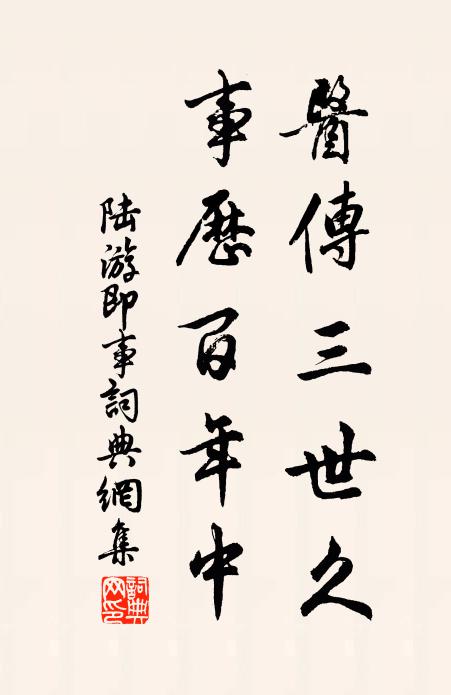 醫傳三世久
事歷百年中
陆游即事詞典網集
詞典网印